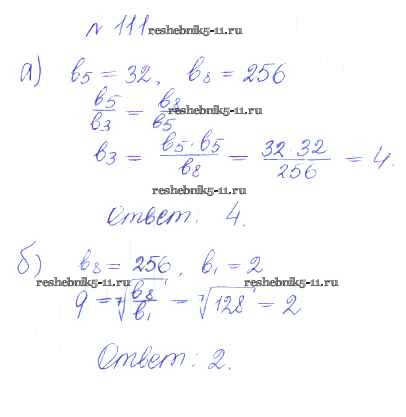 № 111 reshebnik5-11.ru
а) b₅ = 32, b₈ = 256
b₅/b₃ = b₈/b₅ reshebnik5-11.ru
b₃ = b₅·b₅/b₈ = 32·32/256 = 4.
reshebnik5-11.ru
Ответ. 4.
reshebnik5-11.ru
б) b₈ = 256, b₁ = 2
reshebnik5-11.ru reshebnik5-11.ru
q = ⁷√(b₈/b₁) = ⁷√128 = 2
Ответ: 2.